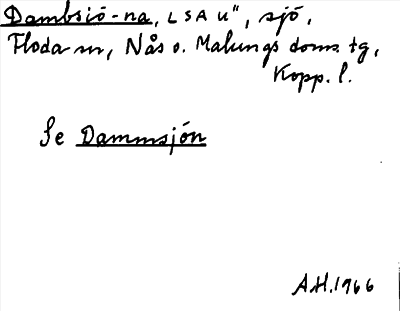 Dambsiö-na, LSA U", sjö,
Floda sn, Nås o. Malungs doms. tg,
Kopp. l.
Se Dammsjön
A.H. 1966